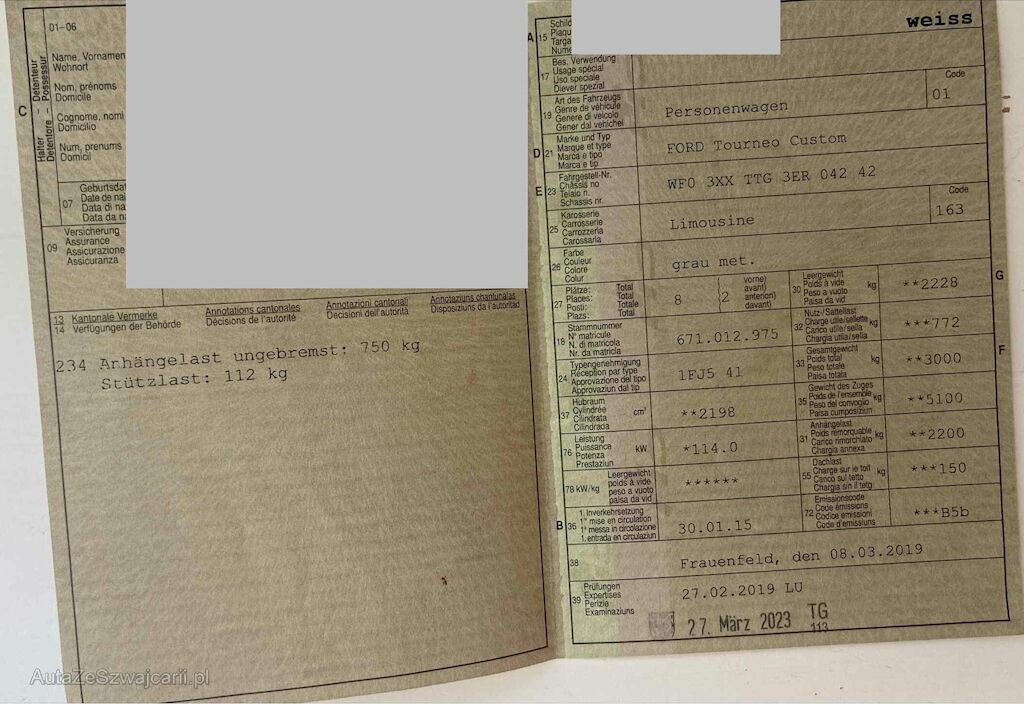 01-06
C
Halter - Détenteur
Detentore - Possessur
Name, Vornamen
Wohnort
Nom, prénoms
Domicile
Cognome, nomi
Domicilio
Num, prenums
Domicil
07
Geburtsdat
Date de nai
Data di na
Data da na
09
Versicherung
Assurance
Assicurazione
Assicuranza
13 Kantonale Vermerke
14 Verfügungen der Behörde
Annotations cantonales
Décisions de l'autorité
Annotazioni cantonali
Decisioni dell'autorità
Annotaziuns chantunalas
Disposiziuns da l'autoritad
234 Anhängelast ungebremst: 750 kg
Stützlast: 112 kg
A 15
Schild
Plaqu
Targa
Nume
weiss
17
Bes. Verwendung
Usage spécial
Uso speciale
Diever spezial
19
Art des Fahrzeugs
Genre de véhicule
Genere di veicolo
Gener dal vehichel
Personenwagen
Code
01
D 21
Marke und Typ
Marque et type
Marca e tipo
Marca e tip
FORD Tourneo Custom
E 23
Fahrgestell-Nr.
Châssis no
Telaio n.
Schassis nr.
WF0 3XX TTG 3ER 042 42
25
Karosserie
Carrosserie
Carrozzeria
Carossaria
Limousine
Code
163
26
Farbe
Couleur
Colore
Colur
grau met.
27
Plätze: Total
Places: Total
Posti: Totale
Plazs: Total
8
2
vorne)
avant)
anteriori)
davant)
30
Leergewicht
Poids à vide
Peso a vuoto
Paisa da vid
kg
**2228
G
18
Stammnummer
N° matricule
N. di matricola
Nr. da matricla
671.012.975
32
Nutz-/Sattellast
Charge utile/sellette
Carico utile/sella
Chargia utila/sella
kg
***772
24
Typengenehmigung
Réception par type
Approvazione del tipo
Approvaziun dal tip
1FJ5 41
33
Gesamtgewicht
Poids total
Peso totale
Paisa totala
kg
**3000
F
37
Hubraum
Cylindrée
Cilindrata
Cilindrada
cm³
**2198
35
Gewicht des Zuges
Poids de l'ensemble
Peso del convoglio
Paisa cumposiziun
kg
**5100
76
Leistung
Puissance
Potenza
Prestaziun
kW
*114.0
31
Anhängelast
Poids remorquable
Carico rimorchiato
Chargia annexa
kg
**2200
78 kW/kg
Leergewicht
poids à vide
peso a vuoto
paisa da vid
******
55
Dachlast
Charge sur le toit
Carico sul tetto
Chargia sin il tetg
kg
***150
B 36
1. Inverkehrsetzung
1re mise en circulation
1a messa in circolazione
1. entrada en circulaziun
30.01.15
72
Emissionscode
Code émissions
Codice emissioni
Code d'emissiuns
***B5b
38
Frauenfeld, den 08.03.2019
39
Prüfungen
Expertises
Perizie
Examinaziuns
27.02.2019 LU
27. März 2023 TG
113
AutaZeSzwajcarii.pl